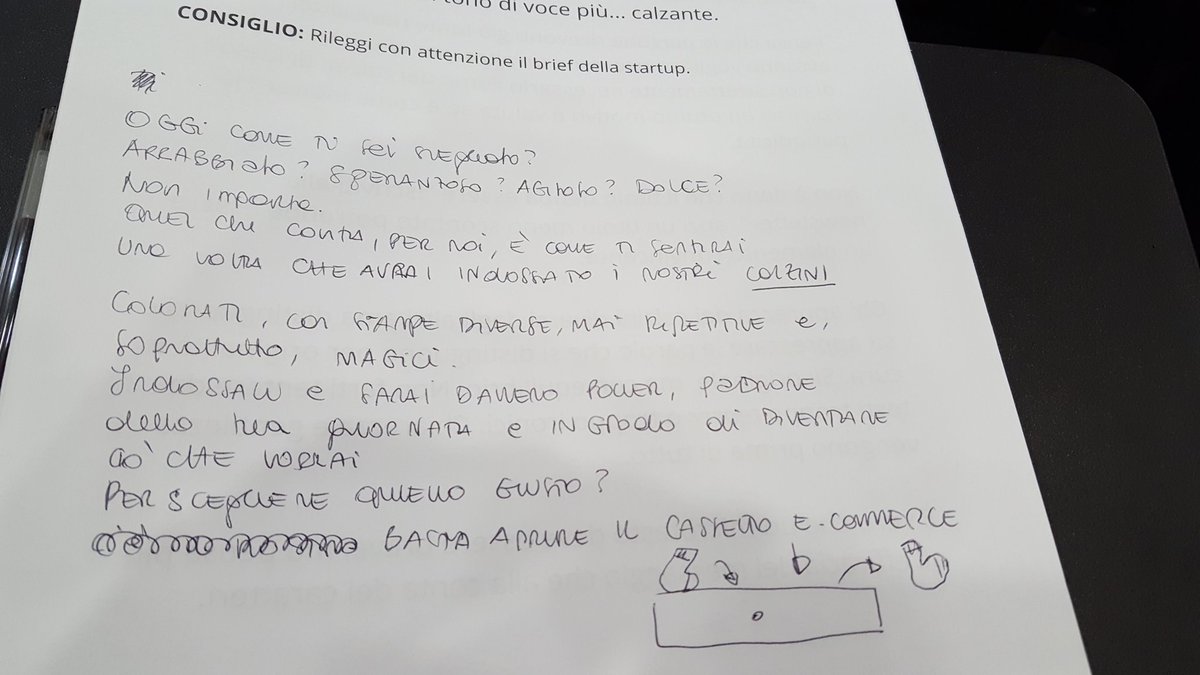 tono di voce più... calzante.
CONSIGLIO: Rileggi con attenzione il brief della startup.
OGGi COME Ti SEi SVEGLiATO?
ARRABBIATO? SPERANZOSO? AGITATO? DOLCE?
NON IMPORTA.
QUEL CHE CONTA, PER NOI, È COME TI SENTIRAI
UNA VOLTA CHE AVRAI INDOSSATO i NOSTRi CALZINI
COLORATI, CON STAMPE DIVERSE, MAI RIPETITIVE e,
SOPRATTUTTO, MAGICI.
INDOSSALI e SARAI DAVVERO POWER, PADRONE
della tua GIORNATA e IN GRADO di DIVENTARE
CIÒ CHE VORRAI
PER SCEGLIERE QUELLO GIUSTO?
BASTA APRIRE IL CASSETTO E-COMMERCE